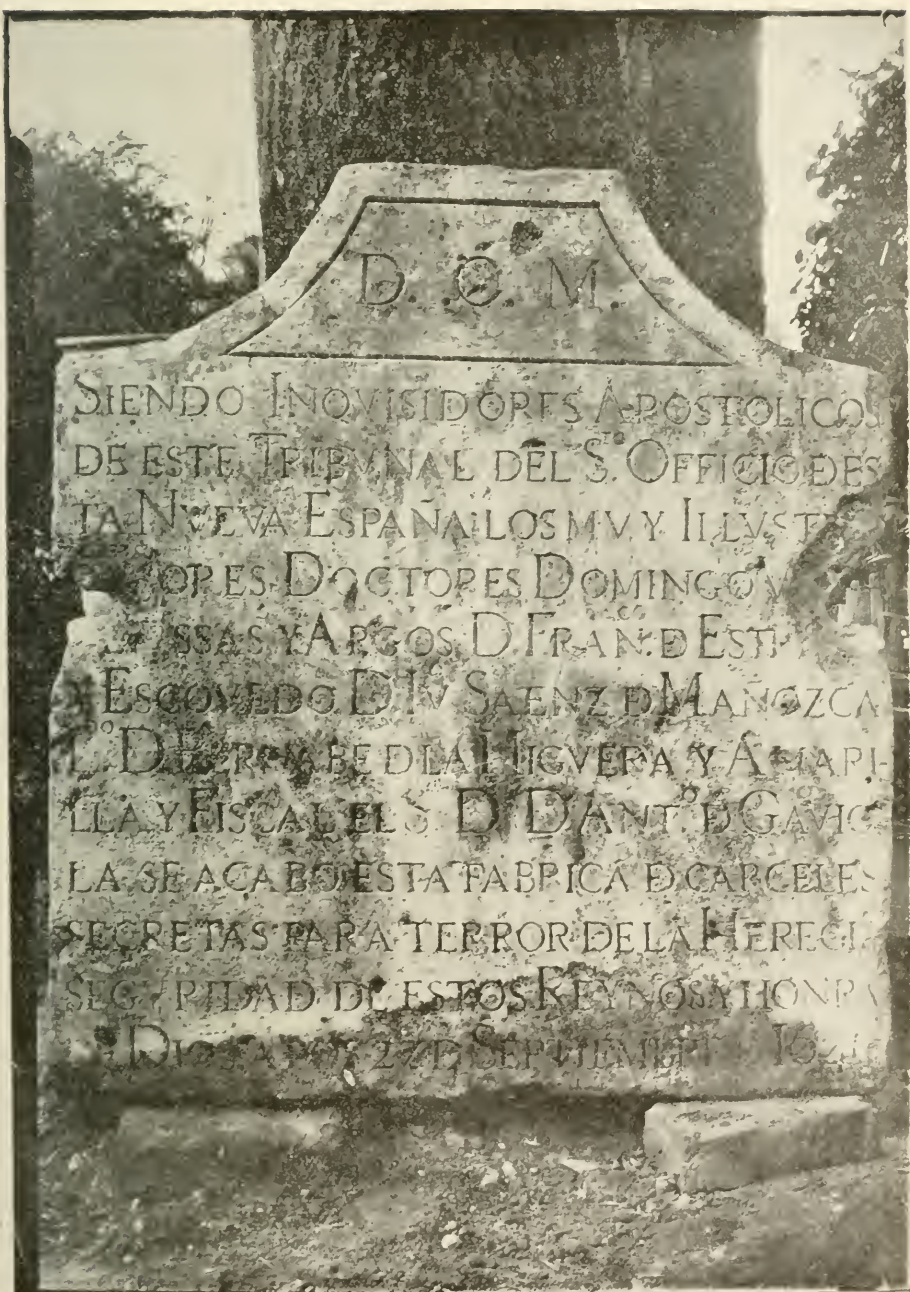 D. O. M.
SIENDO INQVISIDORES APOSTOLICOS
DE ESTE TRIBVNAL DEL S.TO OFFICIO DES
TA NVEVA ESPAÑA LOS MVY ILLVST
ORES DOCTORES DOMINGO
ASSAS Y ARGOS D. FRAN.CO D ESTR
Y ESCOVEDO D. IV SAENZ D MAÑOZCA
L.DO D BERNABE D LA HIGVERA Y AMARI-
LLA Y FISCAL EL S. D. D ANT.O D GAVIO
LA SE ACABO ESTA FABRICA D CARCELES
SECRETAS PARA TERROR DE LA HEREGIA
SEGVRIDAD DE ESTOS REYNOS Y HONRA
DIOS 27 D SEPTIEMBRE